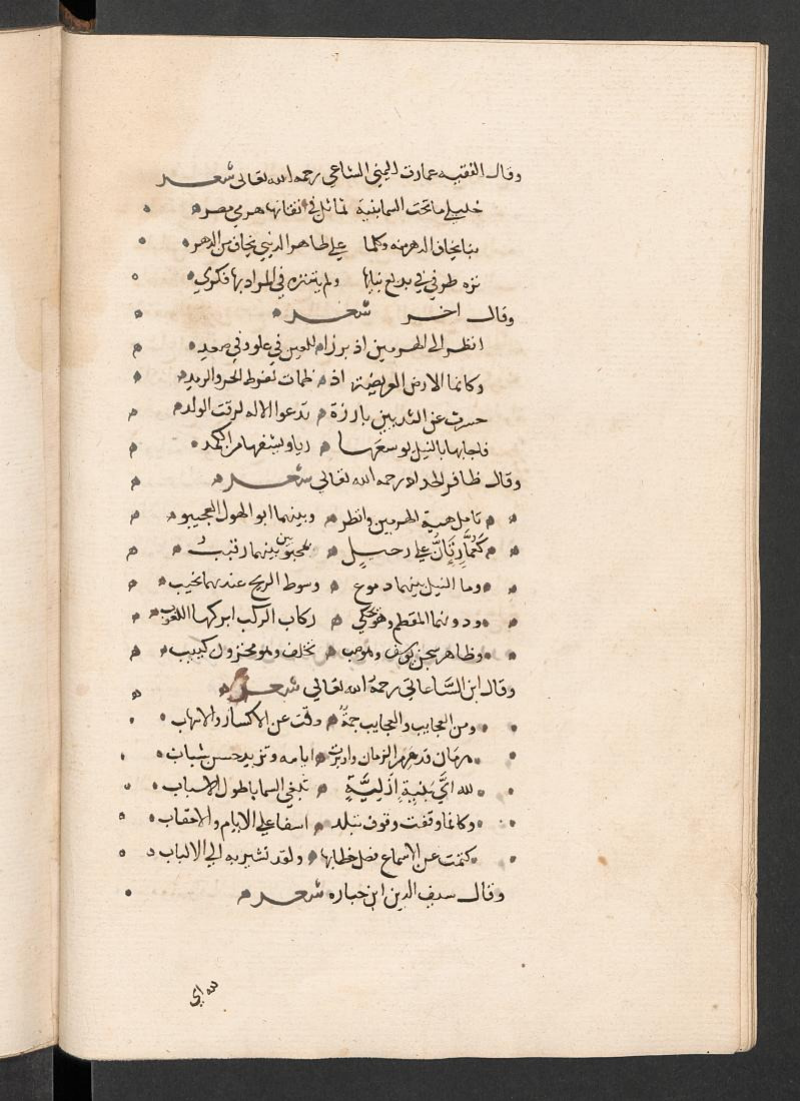 وقال الفقيه عمارت اليمني الشاعي رحمه الله تعالى شعر
خليلي ما تحت السما بنية تماثل في اتقانها هرمي مصر
بنا يخاف الدهر منه وكلما على ظاهر الدني يخاف من الدهر
تنزه طرفي في بديع بنايها ولم يتنزه في المراد بها فكري
وقال اخر شعر
انظر الى الهرمين اذ برزا للعين في علو وفي صعد
وكانما الارض العريضة اذ ظمات لفرط الحر والومد
حسرت عن الثديين بارزة تدعوا الاله لرقت الولد
فاجابها بالنيل يوسعها ريا ويشفيها من الكمد
وقال ظافر الحداد رحمه الله تعالى شعر
تامل هيبة الهرمين وانظر وبينهما ابو الهول العجيبو
كعماريتان على رحيل لمحبوبين بينهما رقيب
وما النيل بينهما دموع وسوط الريح عندهما نحيب
ودونهما المقطم وهو يحكي ركاب الركب ابركها اللغوب
وظاهر سجن يوسف وهو صب تخلف وهو محزول كييب
وقال ابن الساعاتي رحمه الله تعالى شعر
ومن العجايب والعجايب جمة دقت عن الاكسار والانهاب
هرمان قد هرم الزمان وادبرت ايامه وتزيد حسن شباب
لله اي بنية ازلية تبغي السما باطول الاسباب
وكانما وقفت وقوف تبلد اسفا على الايام والاحقاب
كتمت عن الاسماع فصل خطابها ولقد تشير به الى الالباب
وقال سيف الدين ابن جباره شعر
لله اي